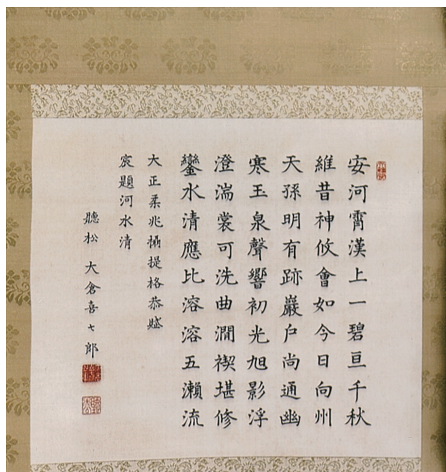 安河霄漢上一碧亘千秋
維昔神攸會如今日向州
天孫明有跡巖戶尚通幽
寒玉泉聲響初光旭影浮
澄湍裳可洗曲澗禊堪修
鑾水清應比溶溶五瀨流
大正柔兆攝提格恭賦
宸題河水清
聽松 大倉喜七郎